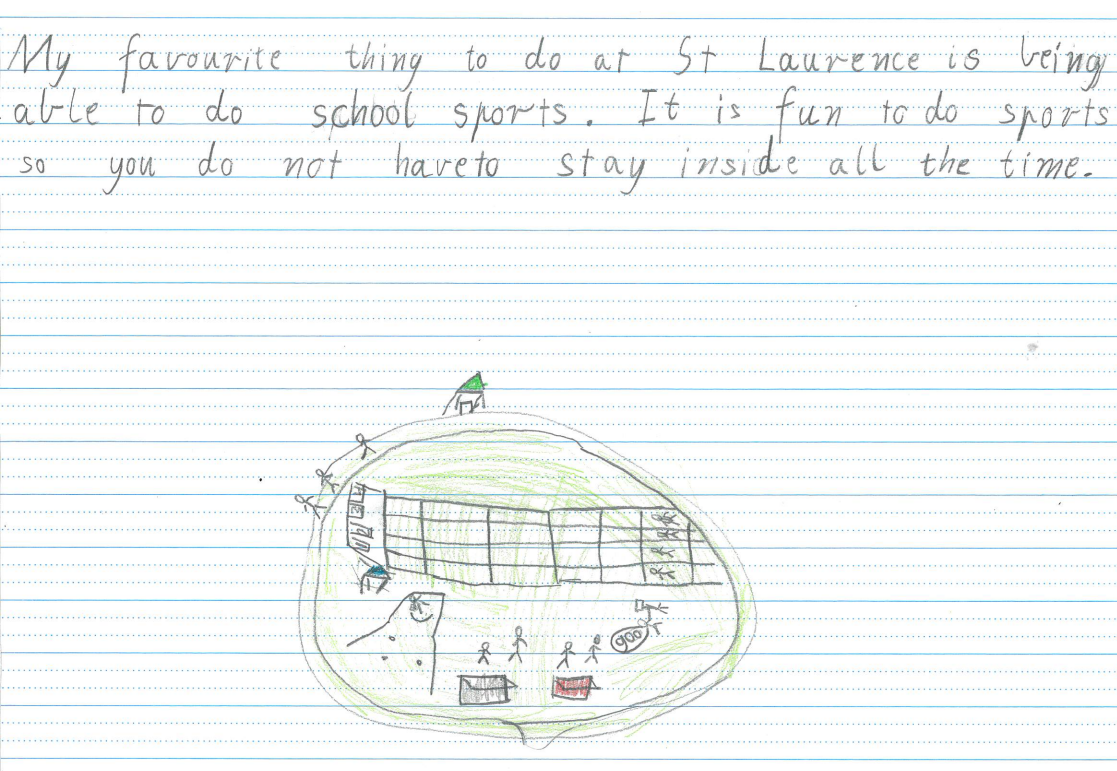 My favourite thing to do at St Laurence is being
able to do school sports. It is fun to do sports
so you do not haveto stay inside all the time.
goo